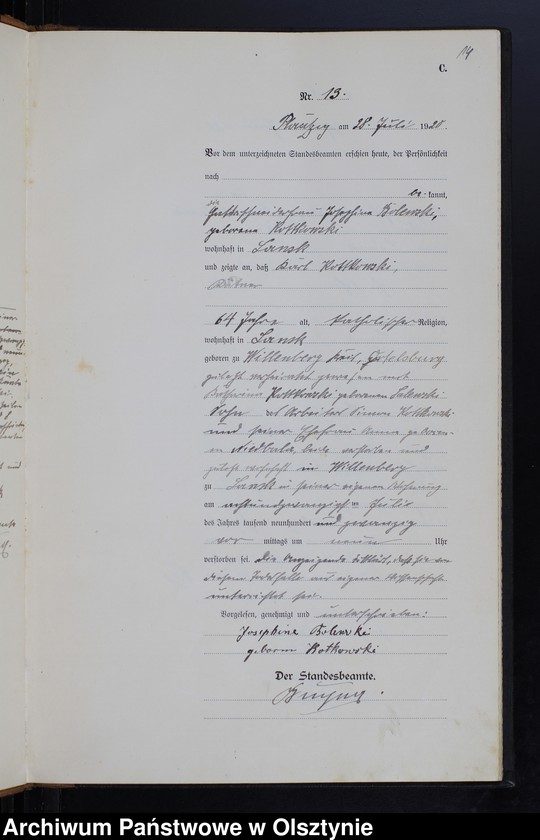 14
C.
Nr. 13.
am 28. Juli 1920.
Vor dem unterzeichneten Standesbeamten erschien heute, der Persönlichkeit
nach
be kannt,
die
Josephine Bolewski,
geborene Kottkowski
wohnhaft in Lansk
und zeigte an, daß Karl Kottkowski,
64 Jahre alt, katholischer Religion,
wohnhaft in Lansk
geboren zu Willenberg Kreis Ortelsburg
zuletzt verheiratet gewesen mit
Katharina Kottkowski geborenen
Sohn des Arbeiters Simon Kottkowski
und seiner Ehefrau Anna gebore-
nen beide verstorben und
zuletzt wohnhaft in Willenberg
zu Lansk in seiner eigenen Wohnung
am achtundzwanzigsten Juli
des Jahres tausend neunhundert und zwanzig
vor mittags um neun Uhr
verstorben sei. Die Anzeigende erklärt, daß sie von
diesem Todesfalle aus eigener Wissenschaft
unterrichtet sei.
Vorgelesen, genehmigt und unterschrieben:
Josephine Bolewski
geborne Kotkowski
Der Standesbeamte.
Archiwum Państwowe w Olsztynie